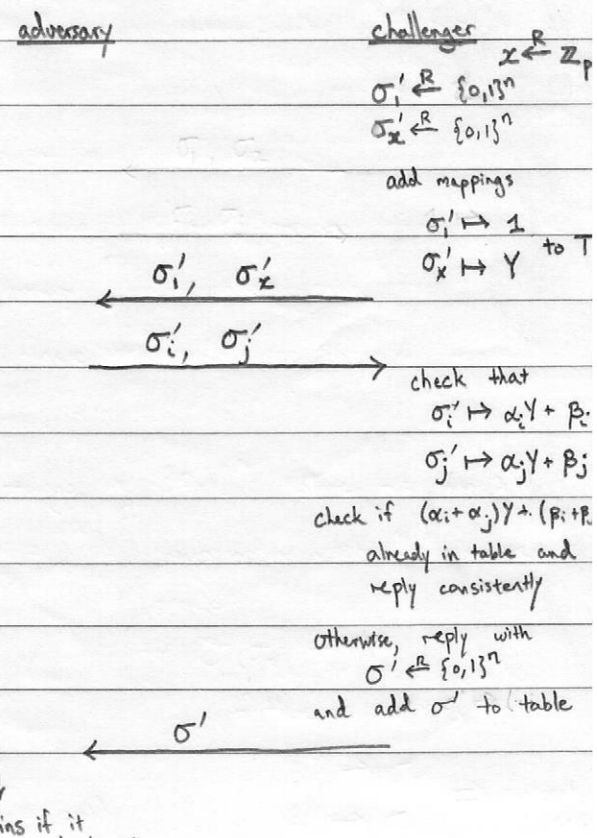 adversary challenger
x ←R ℤp
σ₁' ←R {0,1}ⁿ
σₓ' ←R {0,1}ⁿ
add mappings
σ₁' ↦ 1
to T
σₓ' ↦ Y
σ₁', σₓ'
σᵢ', σⱼ'
check that
σᵢ' ↦ αᵢY + βᵢ
σⱼ' ↦ αⱼY + βⱼ
check if (αᵢ + αⱼ)Y + (βᵢ + β
already in table and
reply consistently
otherwise, reply with
σ' ←R {0,1}ⁿ
and add σ' to table
σ'
if it